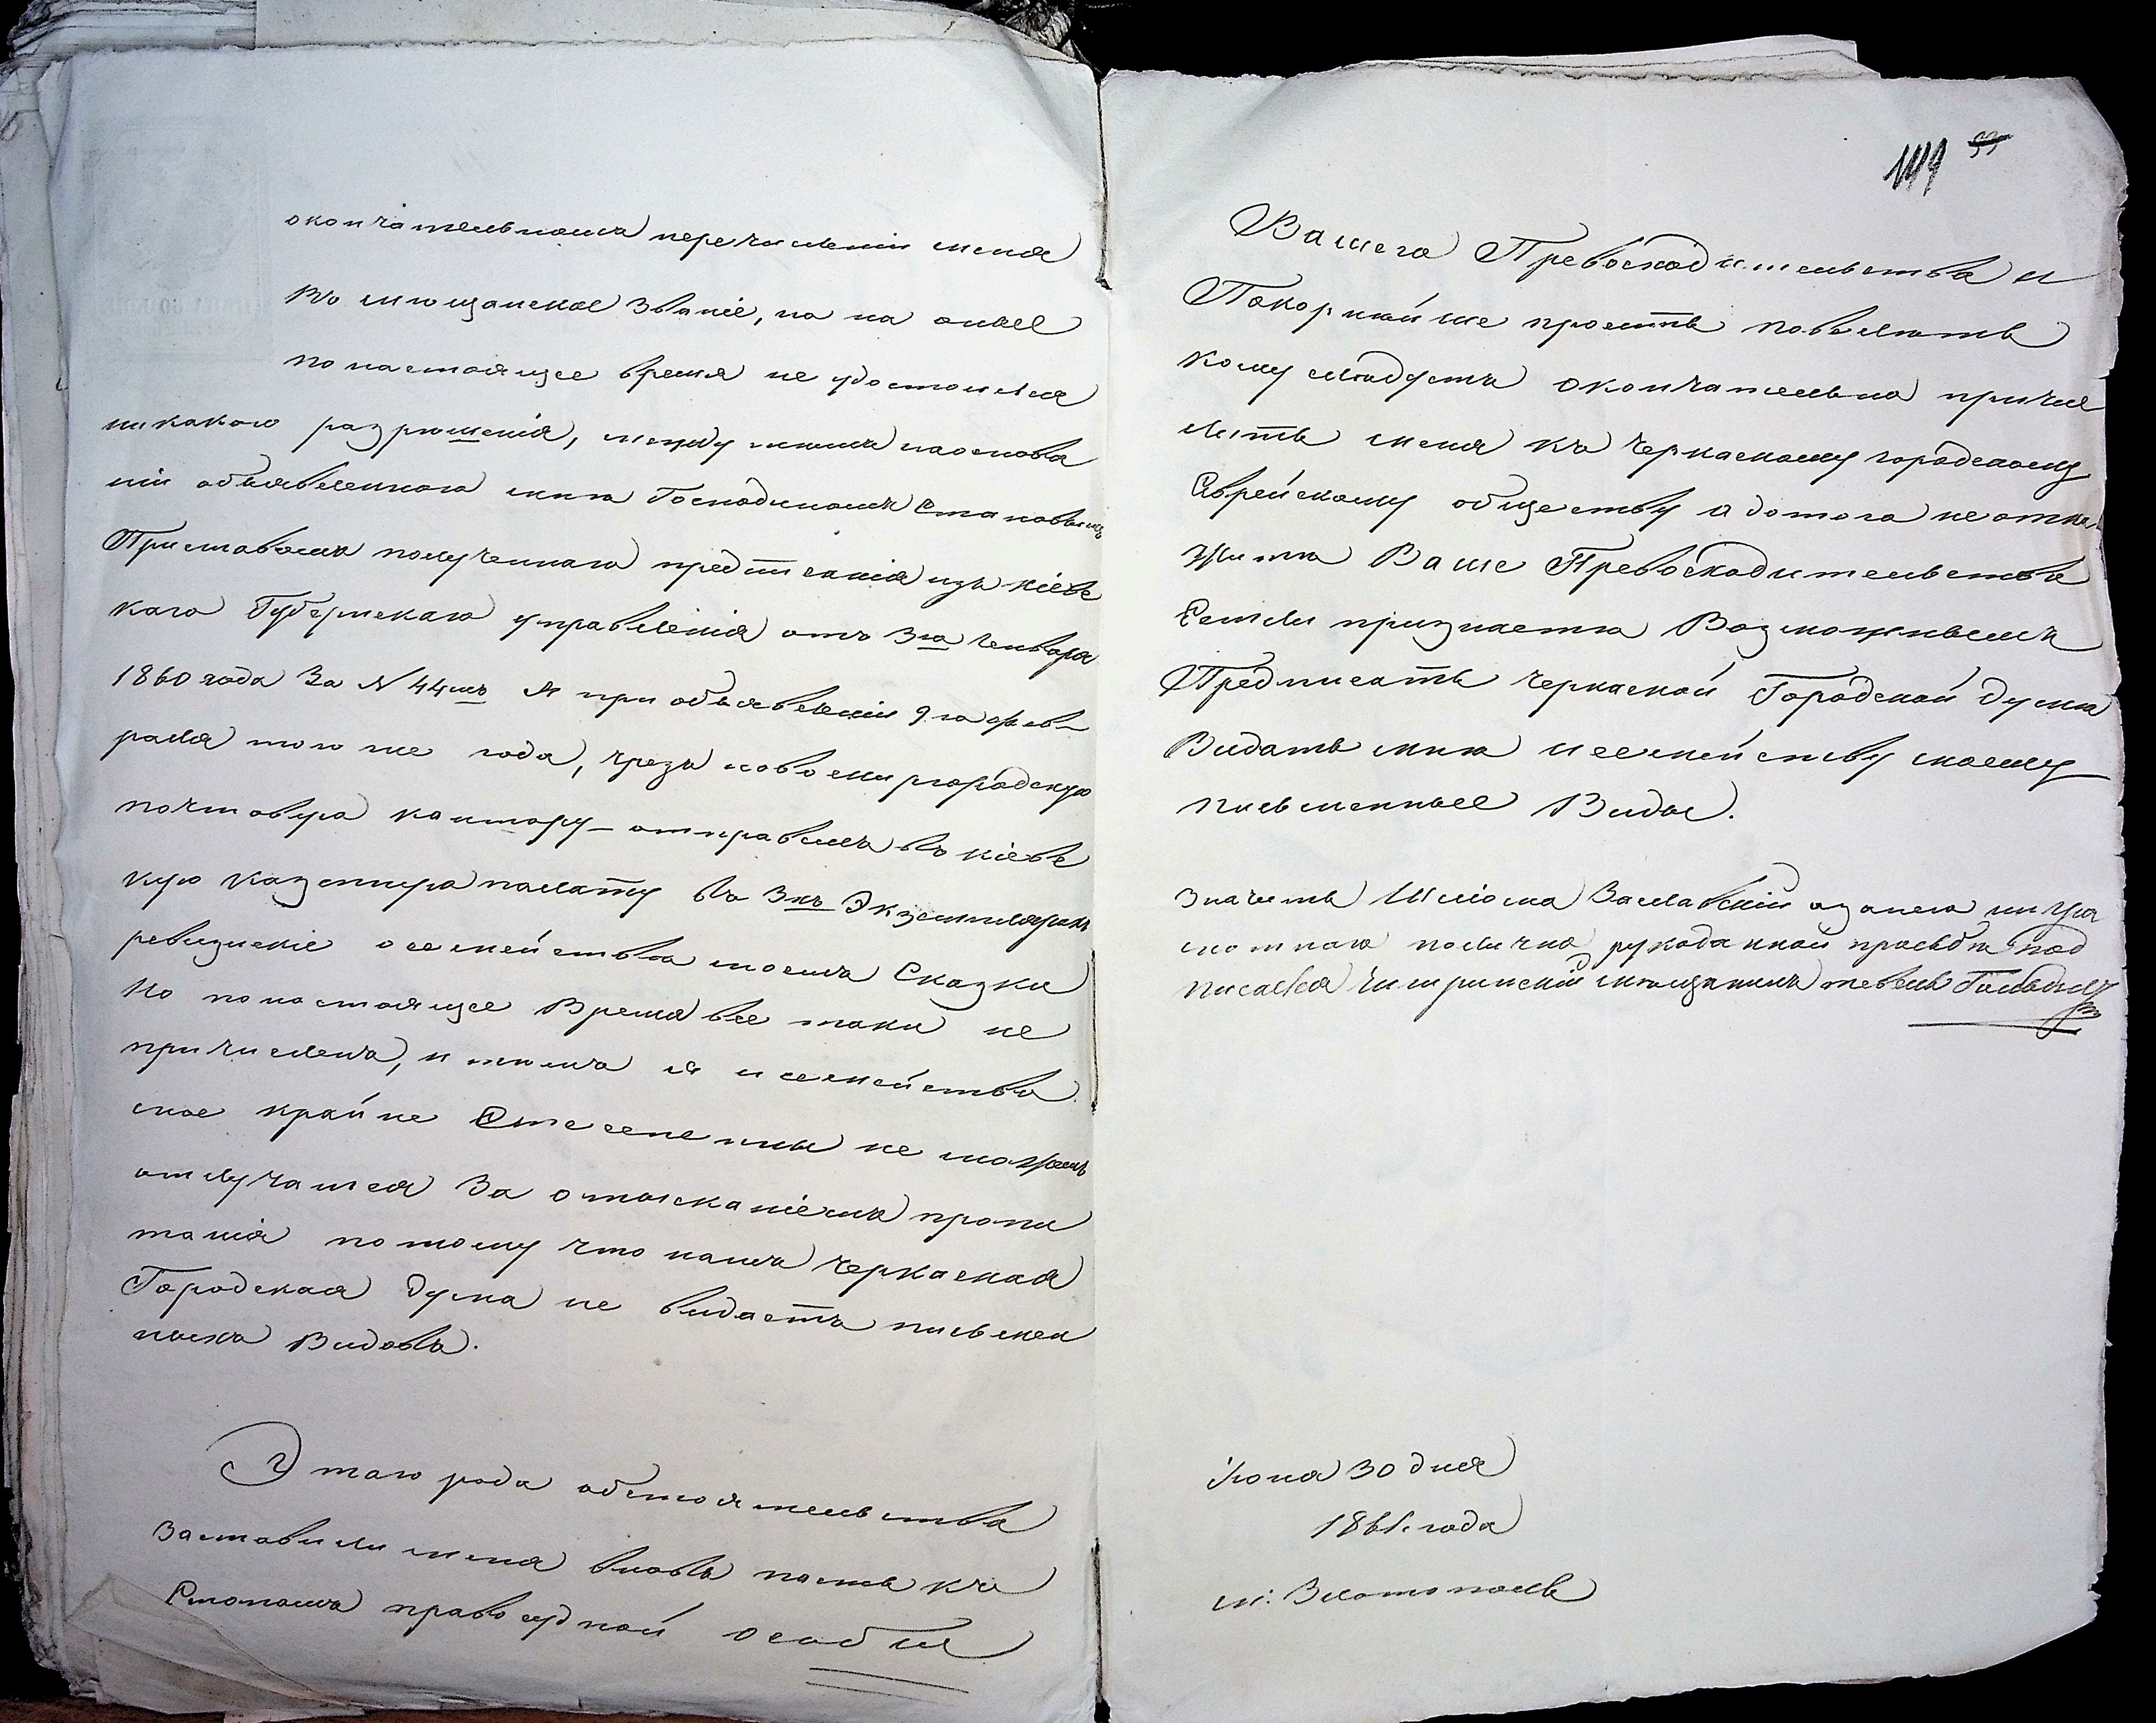 окончательномъ перечисленіи меня
въ мѣщанское званіе, но на оные
по настоящее время не удостоился
никакого разрѣшенія, между тѣмъ на основа
ніи объявленнаго мнѣ Господиномъ Становымъ
Приставомъ полученнаго предписанія изъ кіевс
каго Губернскаго управленія отъ 3го генваря
1860 года За N 44мъ Я при объявленіи 9го фев-
раля того же года, чрезъ новомиргородскую
почтовую кантору – отправилъ въ кіевс
кую казенную палату въ 3хъ Экземплярахъ
ревизскіе о семействѣ моемъ Сказки
Но по настоящее Время все таки не
причисленъ, и тѣмъ я и семейство
мое крайне Стесенены не можемъ
отлучатся За отысканіемъ пропи
танія потому что намъ Черкаская
Городская Дума не видаетъ письмен
ныхъ Видовъ.
Этаго рода обстоятельства
Заставили меня вновь пасть къ
Стопамъ правосудной особы
149
Вашего Превосходительства и
Покорнѣйше просить повелѣть
кому слѣдуетъ окончательно причис
лить меня къ Черкаскому городскому
Еврейскому обществу а до того не отка
жите Ваше Превосходительство
Если признаете Возможнымъ
Предписать Черкаской Городской Думѣ
Видать мнѣ и семейству моему
письменные Виды.
Шліома Заславскій а за него
по личной рукоданной прозьбѣ под
писался Чигиринскій мѣщанинъ
Іюня 30 дня
1861. года
м: Златополь